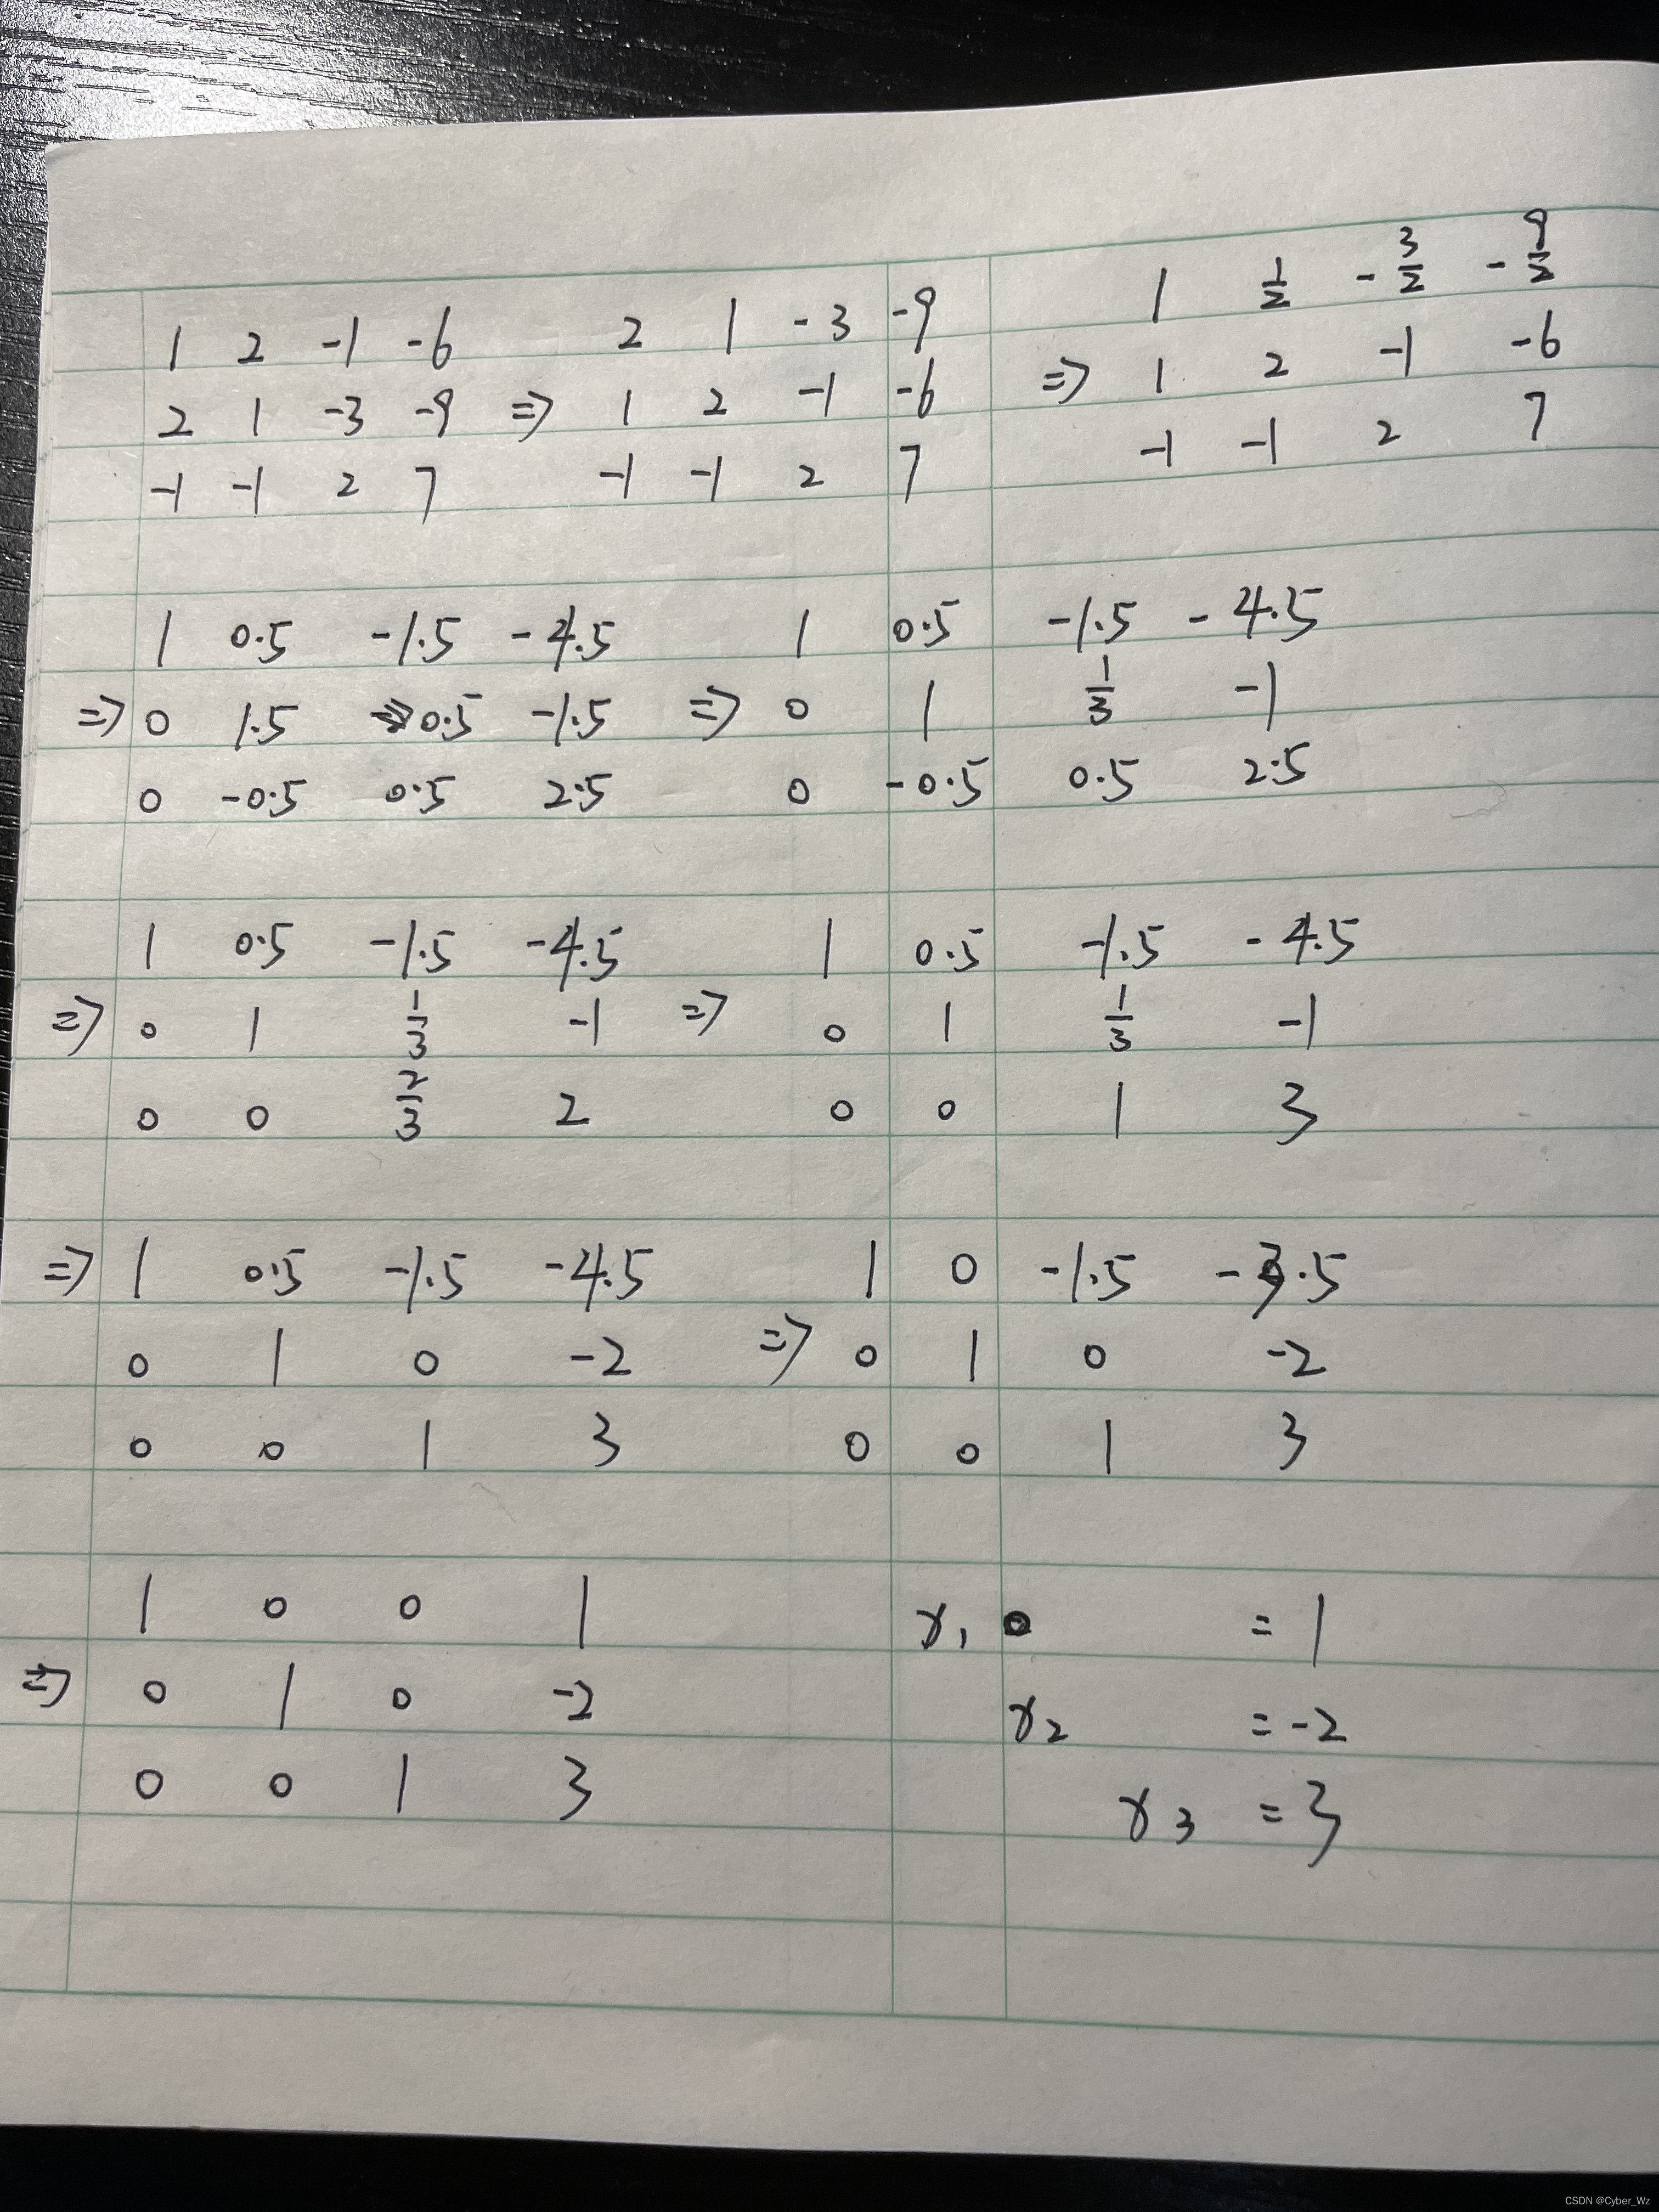 1 2 -1 -6 2 1 -3 -9 1 1/2 -3/2 -9/2
2 1 -3 -9 => 1 2 -1 -6 => 1 2 -1 -6
-1 -1 2 7 -1 -1 2 7 -1 -1 2 7
1 0.5 -1.5 -4.5 1 0.5 -1.5 -4.5
=> 0 1.5 0.5 -1.5 => 0 1 1/3 -1
0 -0.5 0.5 2.5 0 -0.5 0.5 2.5
1 0.5 -1.5 -4.5 1 0.5 -1.5 -4.5
=> 0 1 1/3 -1 => 0 1 1/3 -1
0 0 2/3 2 0 0 1 3
=> 1 0.5 -1.5 -4.5 1 0 -1.5 -3.5
0 1 0 -2 => 0 1 0 -2
0 0 1 3 0 0 1 3
1 0 0 1 x1 = 1
=> 0 1 0 -2 x2 = -2
0 0 1 3 x3 = 3
CSDN @Cyber_Wz